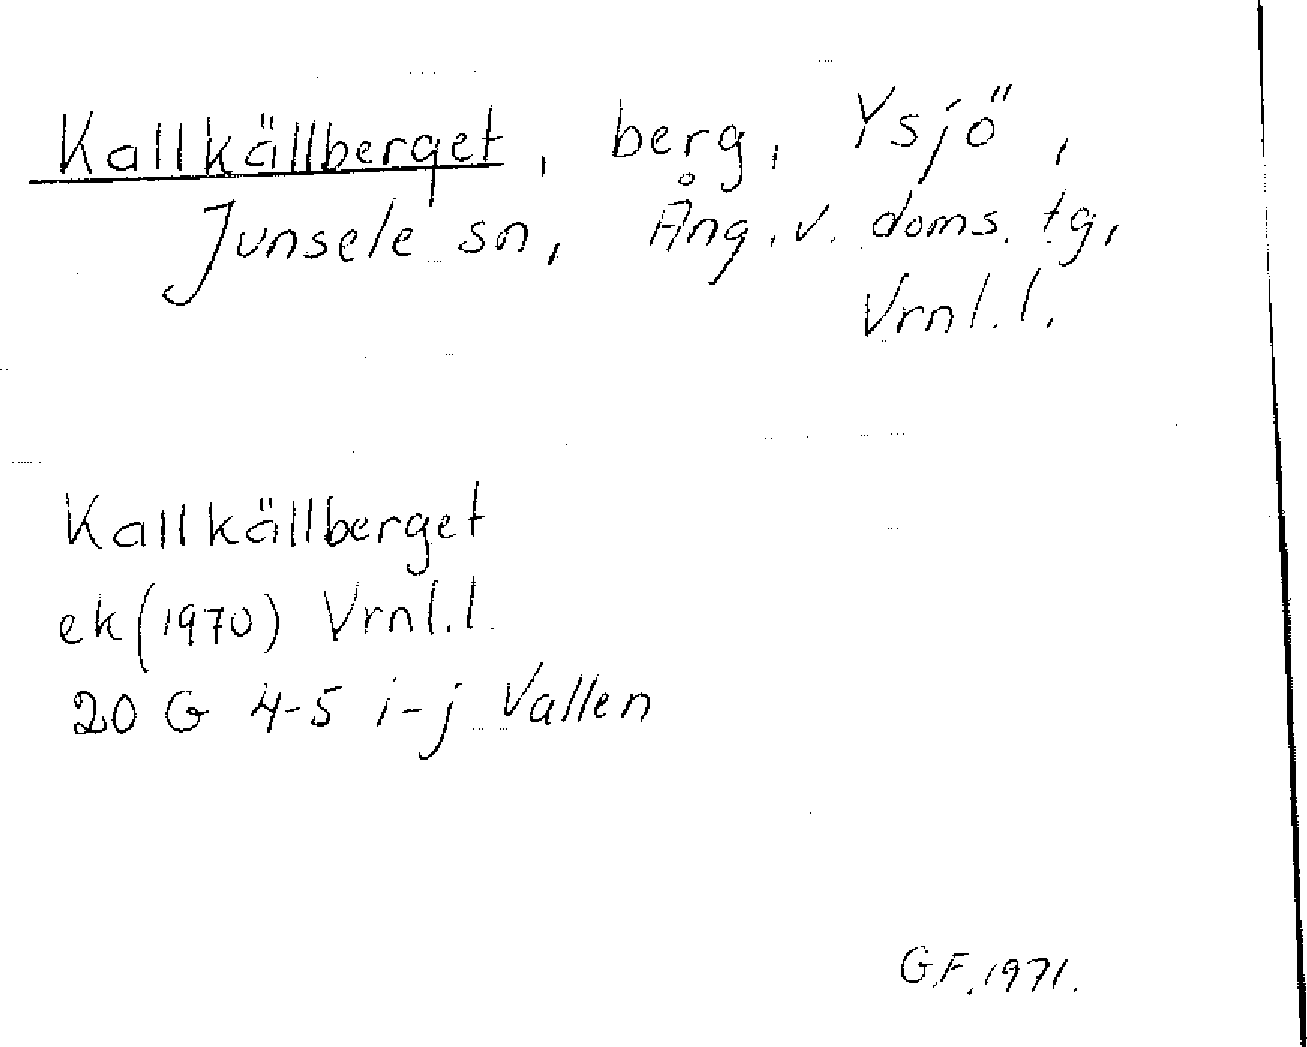 Kallkällberget, berg, Ysjö,
Junsele sn, Ång. v. doms. tg,
Vrnl. l.
Kallkällberget
ek (1970) Vrnl. l.
20 G 4-5 i-j Vallen
G.F. 1971.